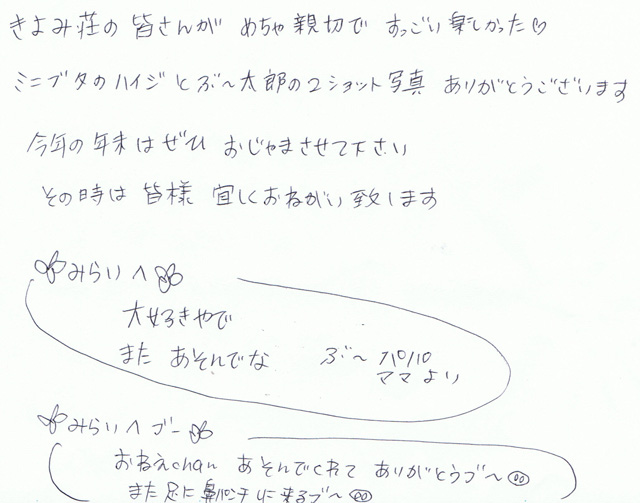 きよみ荘の 皆さんが めちゃ 親切で すっごい 楽しかった♡
ミニブタのハイジと ぶ〜太郎の2ショット写真 ありがとうございます
今年の年末はぜひ おじゃまさせて下さい
その時は 皆様 宜しくおねがい致します
みらいへ
大好きやで
また あそんでな ぶ〜パパ
ママ より
みらいへ ブー
おねえchan あそんでくれて ありがとうブ〜
また 足に 鼻パンチ しに来るブ〜